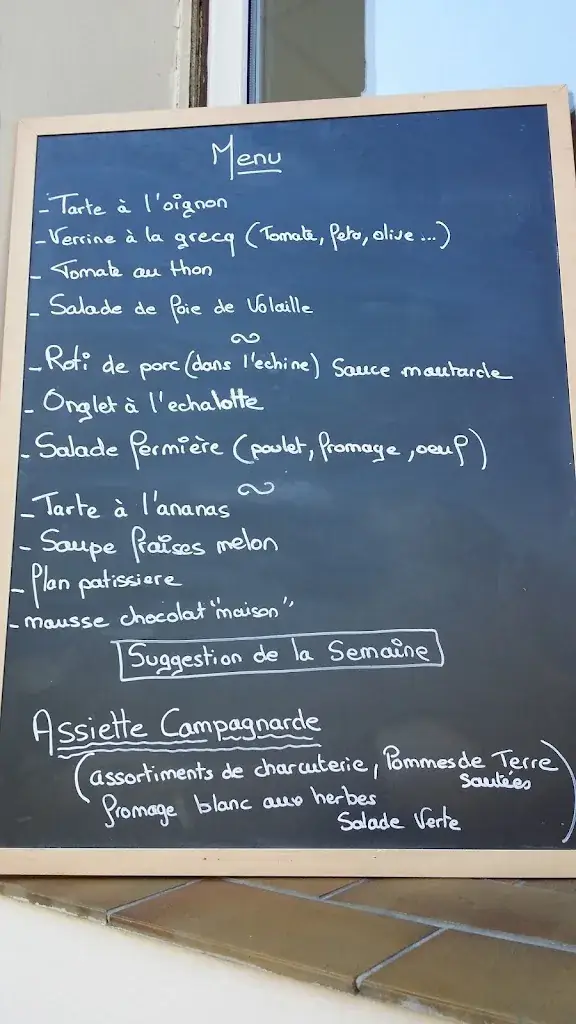 Menu
- Tarte à l'oignon
- Verrine à la grecq (Tomate, feta, olive ...)
- Tomate au thon
- Salade de foie de Volaille
- Roti de porc (dans l'echine) Sauce moutarde
- Onglet à l'echalotte
- Salade fermière (poulet, fromage, oeuf)
- Tarte à l'ananas
- Soupe fraises melon
- flan patissiere
- mousse chocolat "maison"
Suggestion de la Semaine
Assiette Campagnarde
(assortiments de charcuterie, Pommes de Terre
sautées
fromage blanc aux herbes
Salade Verte)